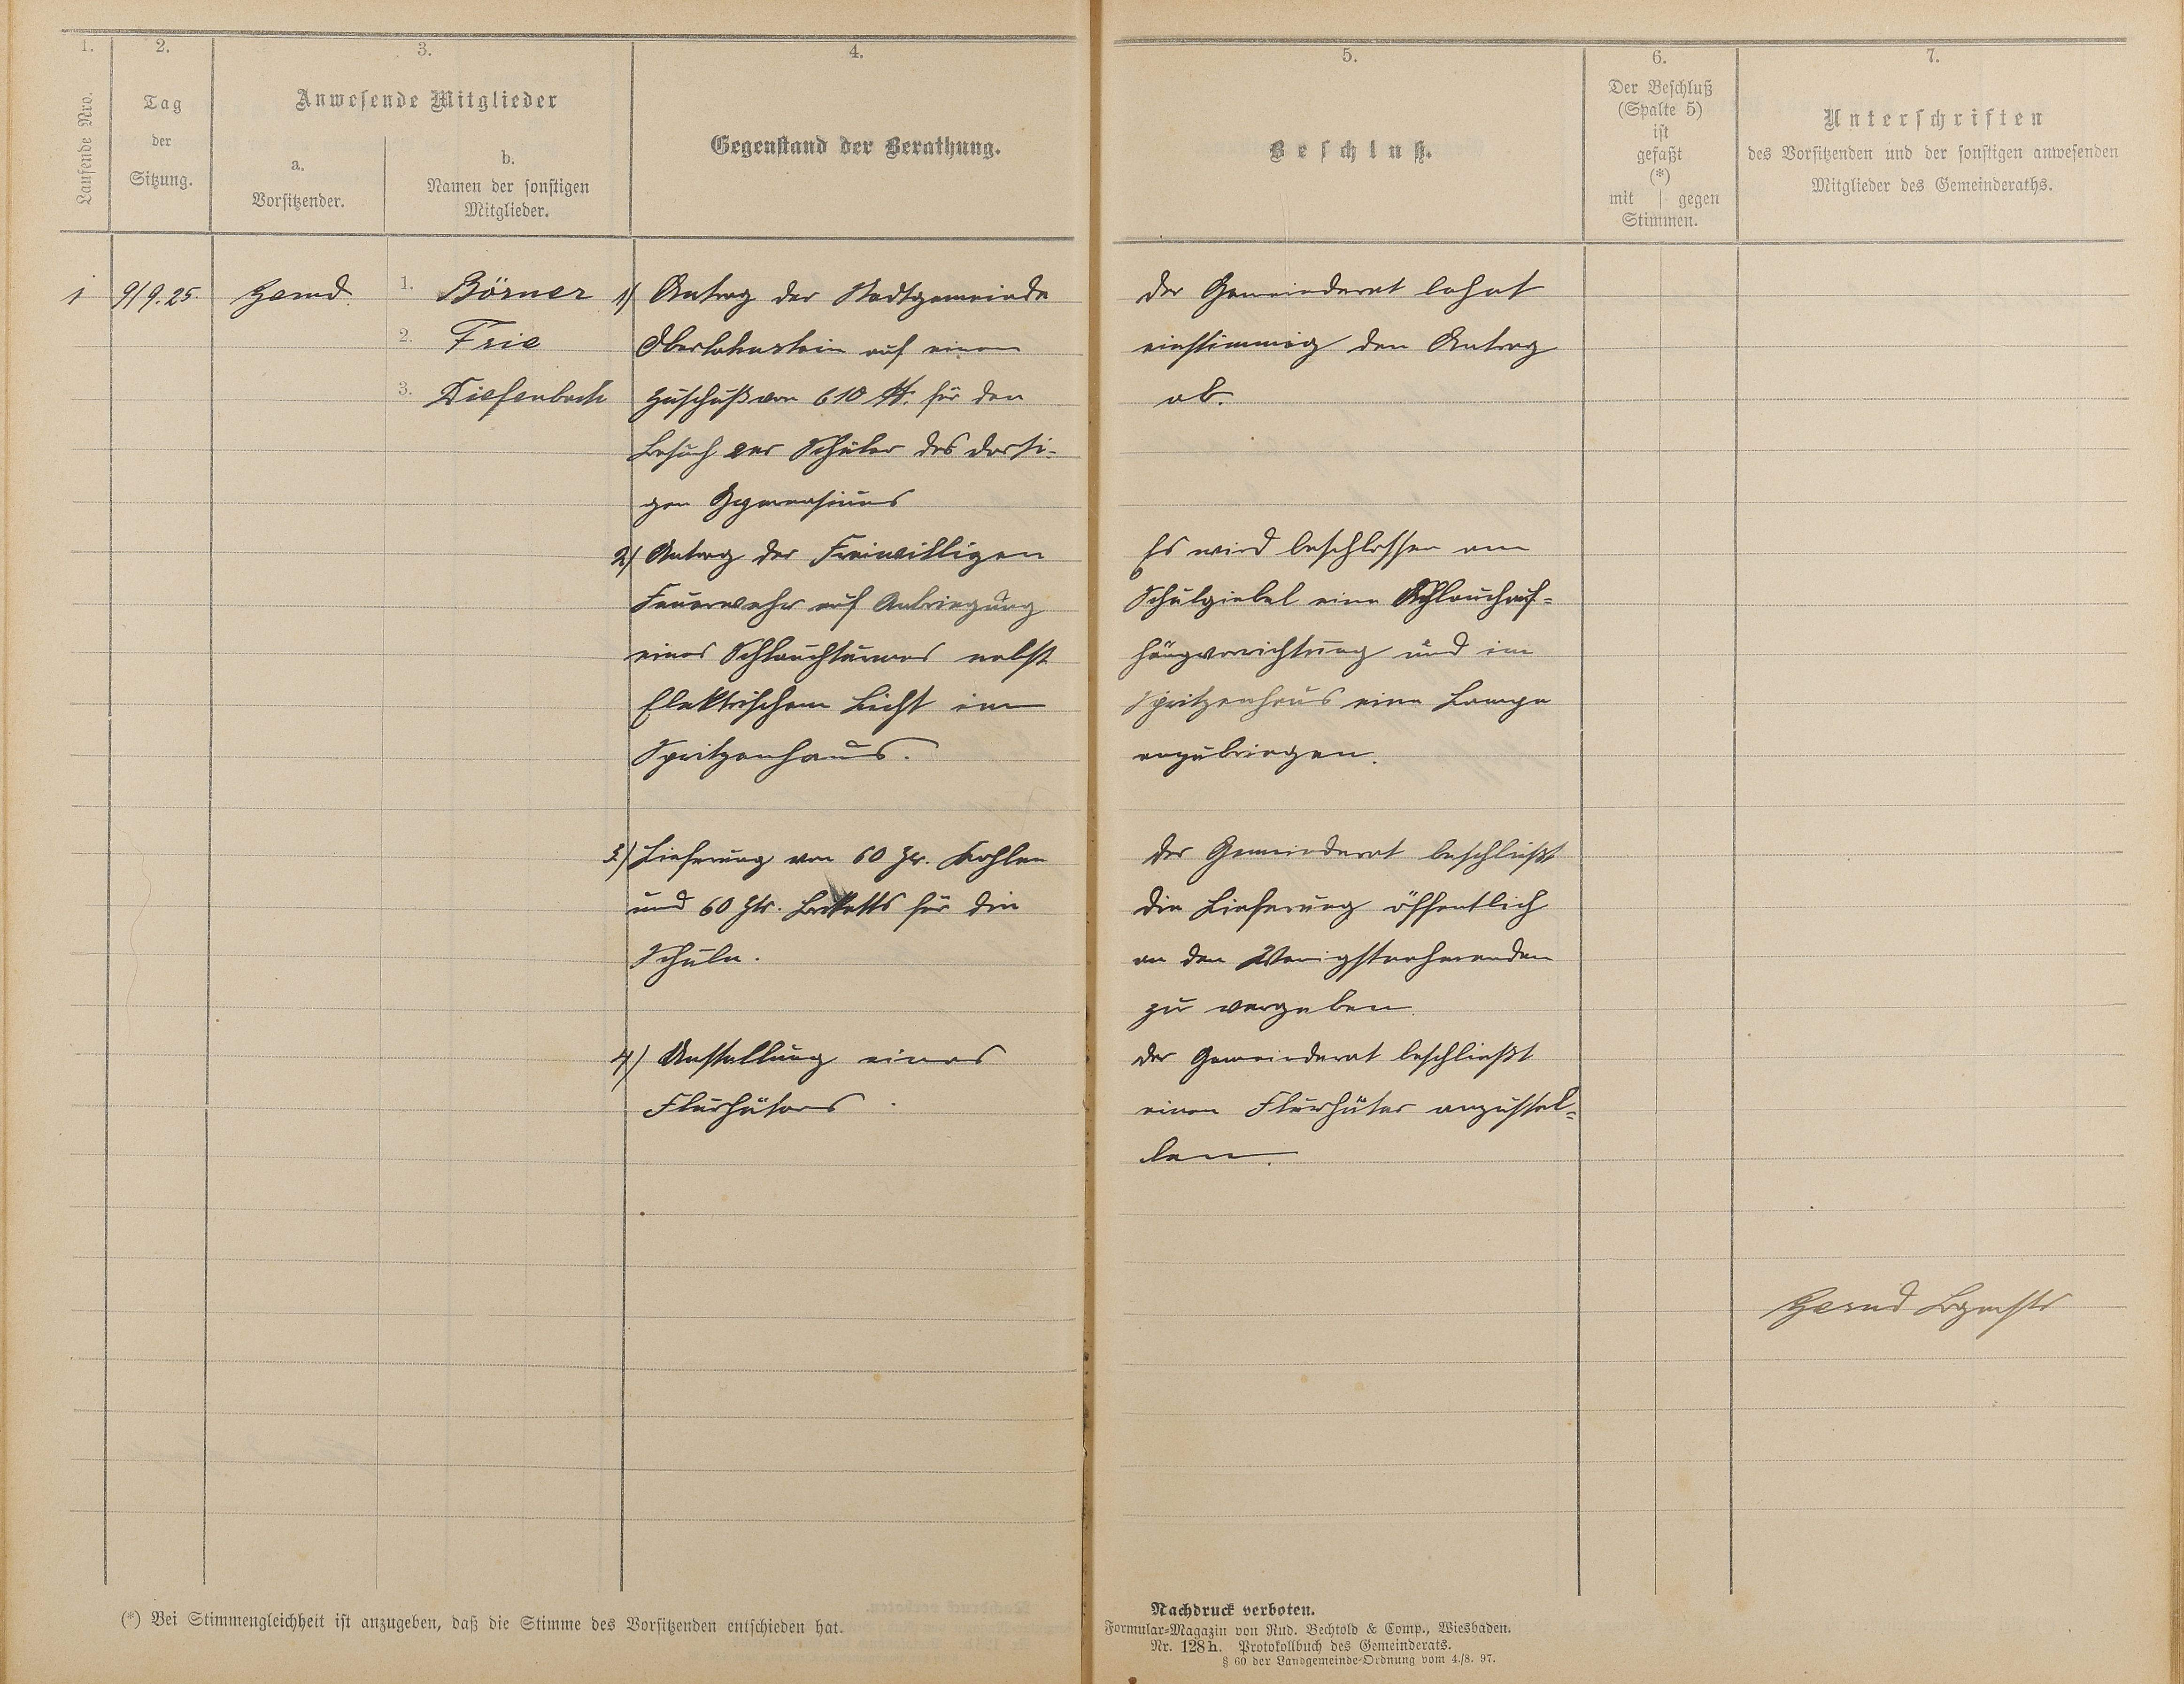 1.
Laufende Nro.
2.
Tag
der
Sitzung.
3.
Anwesende Mitglieder
a.
Vorsitzender.
b.
Namen der sonstigen
Mitglieder.
4.
Gegenstand der Berathung.
5.
Beschluß.
6.
Der Beschluß
(Spalte 5)
ist
gefaßt
(*)
mit | gegen
Stimmen.
7.
Unterschriften
des Vorsitzenden und der sonstigen anwesenden
Mitglieder des Gemeinderaths.
1
9/9.25.
Gemd.
1. Börner
2. Frie
3. Diefenbach
1) Antrag der Stadtgemeinde
Oberlahnstein auf einen
Zuschuß von 610 M. für den
Besuch der Schüler des dorti-
gen Gymnasiums
2) Antrag der Freiwilligen
Feuerwehr auf Anbringung
eines Schlauchturmes nebst
Elektrischem Licht im
Spritzenhaus.
3.) Lieferung von 60 Ztr. Kohlen
und 60 Ztr. Briketts für die
Schule.
4) Anstellung eines
Flurhüters.
Der Gemeinderat lehnt
einstimmig den Antrag
ab.
Es wird beschlossen am
Schulgiebel eine Schlauchauf-
hängvorrichtung und im
Spritzenhaus eine Lampe
anzubringen.
Der Gemeinderat beschließt
die Lieferung öffentlich
an den Wenigstnehmenden
zu vergeben.
Der Gemeinderat beschließt
einen Flurhüter anzustel-
len.
Bgmstr
(*) Bei Stimmengleichheit ist anzugeben, daß die Stimme des Vorsitzenden entschieden hat.
Nachdruck verboten.
Formular-Magazin von Rud. Bechtold & Comp., Wiesbaden.
Nr. 128h. Protokollbuch des Gemeinderats.
§ 60 der Landgemeinde-Ordnung vom 4./8. 97.